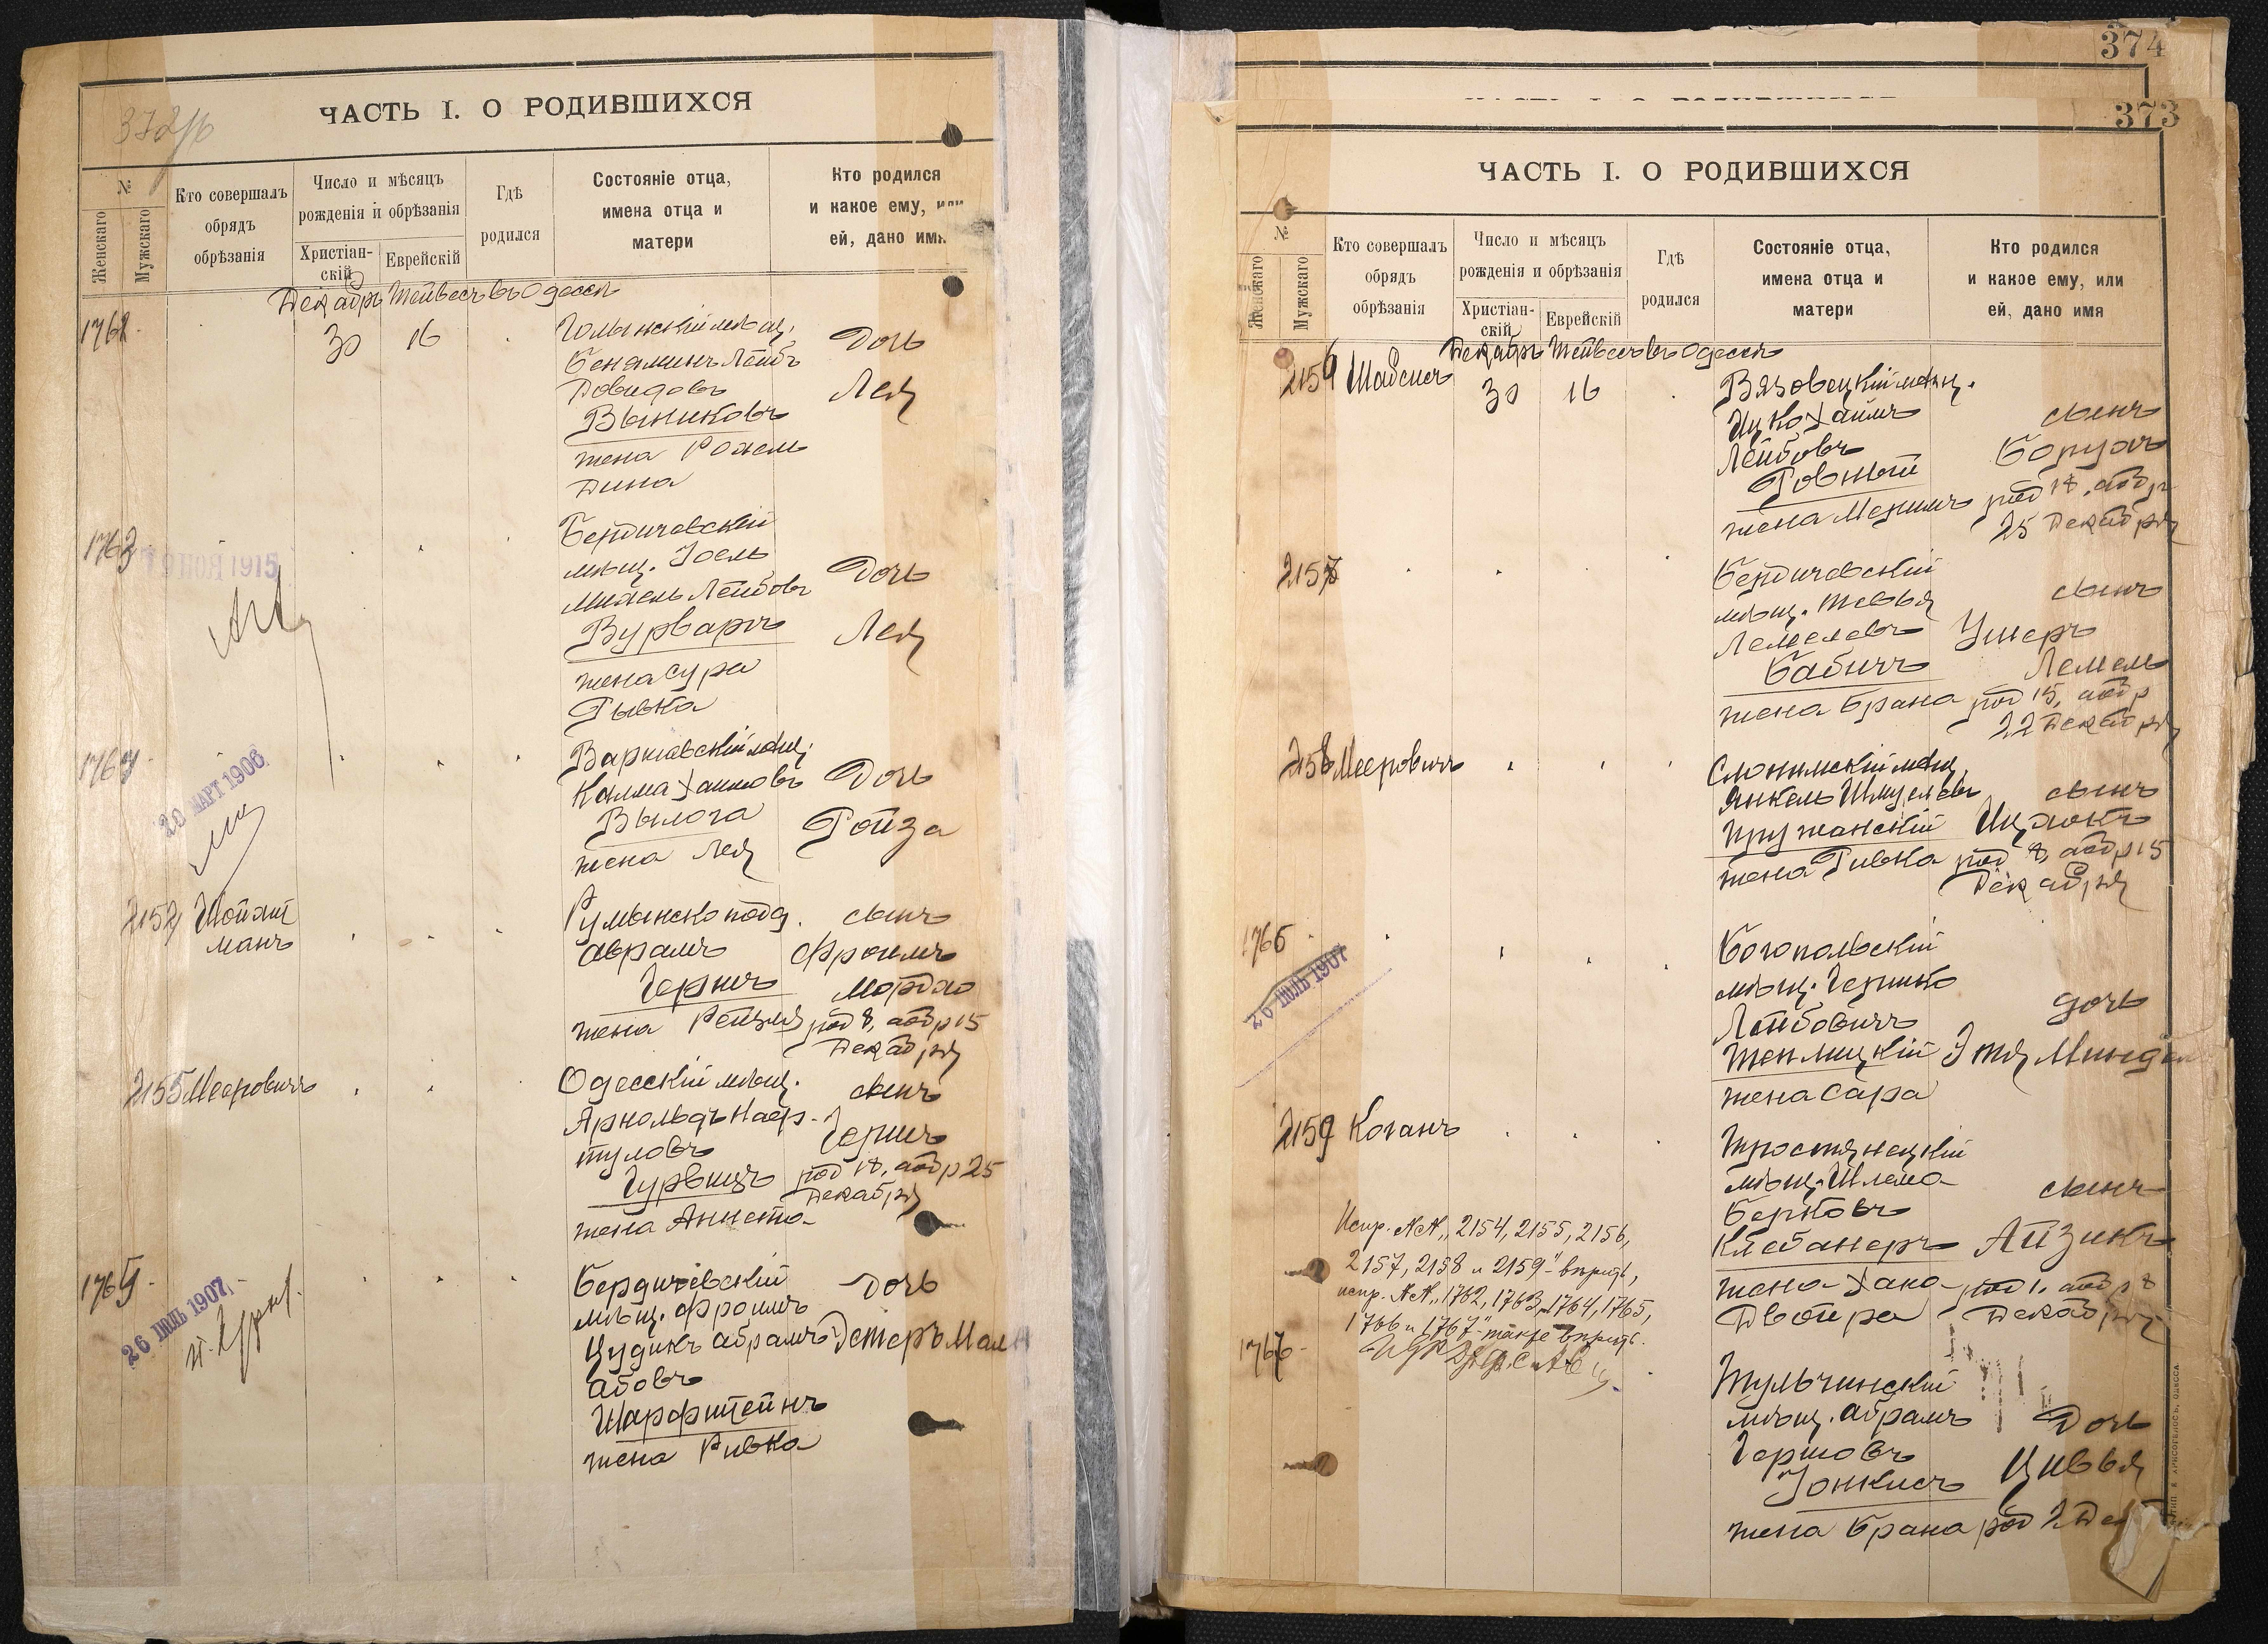 372/б
ЧАСТЬ I. О РОДИВШИХСЯ
№
Женскаго
Мужскаго
Кто совершалъ
обрядъ
обрѣзанія
Число и мѣсяцъ
рожденія и обрѣзанія
Христіан-
скій
Еврейскій
Гдѣ
родился
Состояніе отца,
имена отца и
матери
Кто родился
и какое ему, или
ей, дано имя
Декабрь Тейвесъ въ Одессѣ
1762
30
16
мѣщ.
Бенаминъ Лейбъ
Довидовъ
жена Рохель
Дина
Дочь
Лея
1763
1915
Бердичевскій
мѣщ. Іоель
Михель Лейбовъ
Вурваргъ
жена Сура
Рывка
Дочь
Лея
1764
20 МАРТ 1906
Варшавскій мѣщ.
Калма Хаимовъ
Вылога
жена Лея
Дочь
Ройза
2154
Шойхт
манъ
Румынскоподд.
Абрамъ
Гершъ
жена Рейзля
сынъ
Фроимъ
Мордко
род 8, аобр 15
Декабря
2155
Мееровичъ
Одесскій мѣщ.
Арнольдъ Наф-
туловъ
Гурвицъ
жена Аннета
сынъ
Гершъ
род 18, аобр 25
Декабря
1765
26 ІЮЛЬ 1907
Бердичевскій
мѣщ. Фроимъ
Цудикъ Абрамъ
абовъ
Шарфштейнъ
жена Ривка
Дочь
Эстеръ Мал
374
373
ЧАСТЬ I. О РОДИВШИХСЯ
№
Женскаго
Мужскаго
Кто совершалъ
обрядъ
обрѣзанія
Число и мѣсяцъ
рожденія и обрѣзанія
Христіан-
скій
Еврейскій
Гдѣ
родился
Состояніе отца,
имена отца и
матери
Кто родился
и какое ему, или
ей, дано имя
Декабрь Тейвесъ въ Одессѣ
2156
Шабсисъ
30
16
Вязовецкій мѣщ.
Ицко Хаимъ
Лейбовъ
Ровный
жена Меримъ
сынъ
Борухъ
род 18, аобр
25 Декабря
2157
Бердичевскій
мѣщ. Тевья
Лемелевъ
Бабичъ
жена Брана
сынъ
Ушеръ
Лемель
род 15, аобр
22 Декабря
2158
Мееровичъ
Слонимскій мѣщ.
Янкель Шмулевъ
Пружанскій
жена Ривка
сынъ
Ицхокъ
род 8, аобр 15
Декабря
1766
26 ІЮЛЬ 1907
Богопольскій
мѣщ. Гершко
Лейбовичъ
Теплицкій
жена Сара
дочь
Этя Миндель
2159
Коганъ
Тростянецкій
мѣщ. Шлема
Берковъ
Клебанеръ
жена Хана
Двойра
сынъ
Айзикъ
род 1, аобр 8
Декабря
Испр. №№ „2154, 2155, 2156,
2157, 2158 и 2159“ вѣрить,
испр. №№ „1762, 1763, 1764, 1765,
1766 и 1767“ также вѣрить.
1767
Тульчинскій
мѣщ. Абрамъ
Гершовъ
Іонкисъ
жена Брана
Дочь
Цивья
род 2 Дек